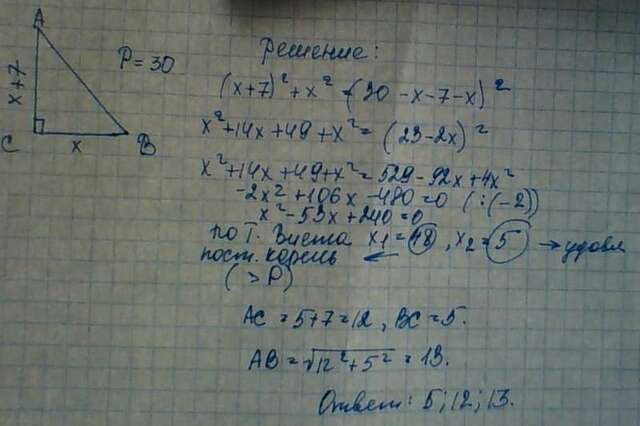 A
P=30
x+7
C
x
B
Решение:
(x+7)² + x² = (30 - x - 7 - x)²
x² + 14x + 49 + x² = (23 - 2x)²
x² + 14x + 49 + x² = 529 - 92x + 4x²
-2x² + 106x - 480 = 0 (:(-2))
x² - 53x + 240 = 0
по Т. Виета x₁ = 48, x₂ = 5 → удовл
пост. корень ←
(>P)
AC = 5+7 = 12, BC = 5.
AB = √12² + 5² = 13.
Ответ: 5; 12; 13.